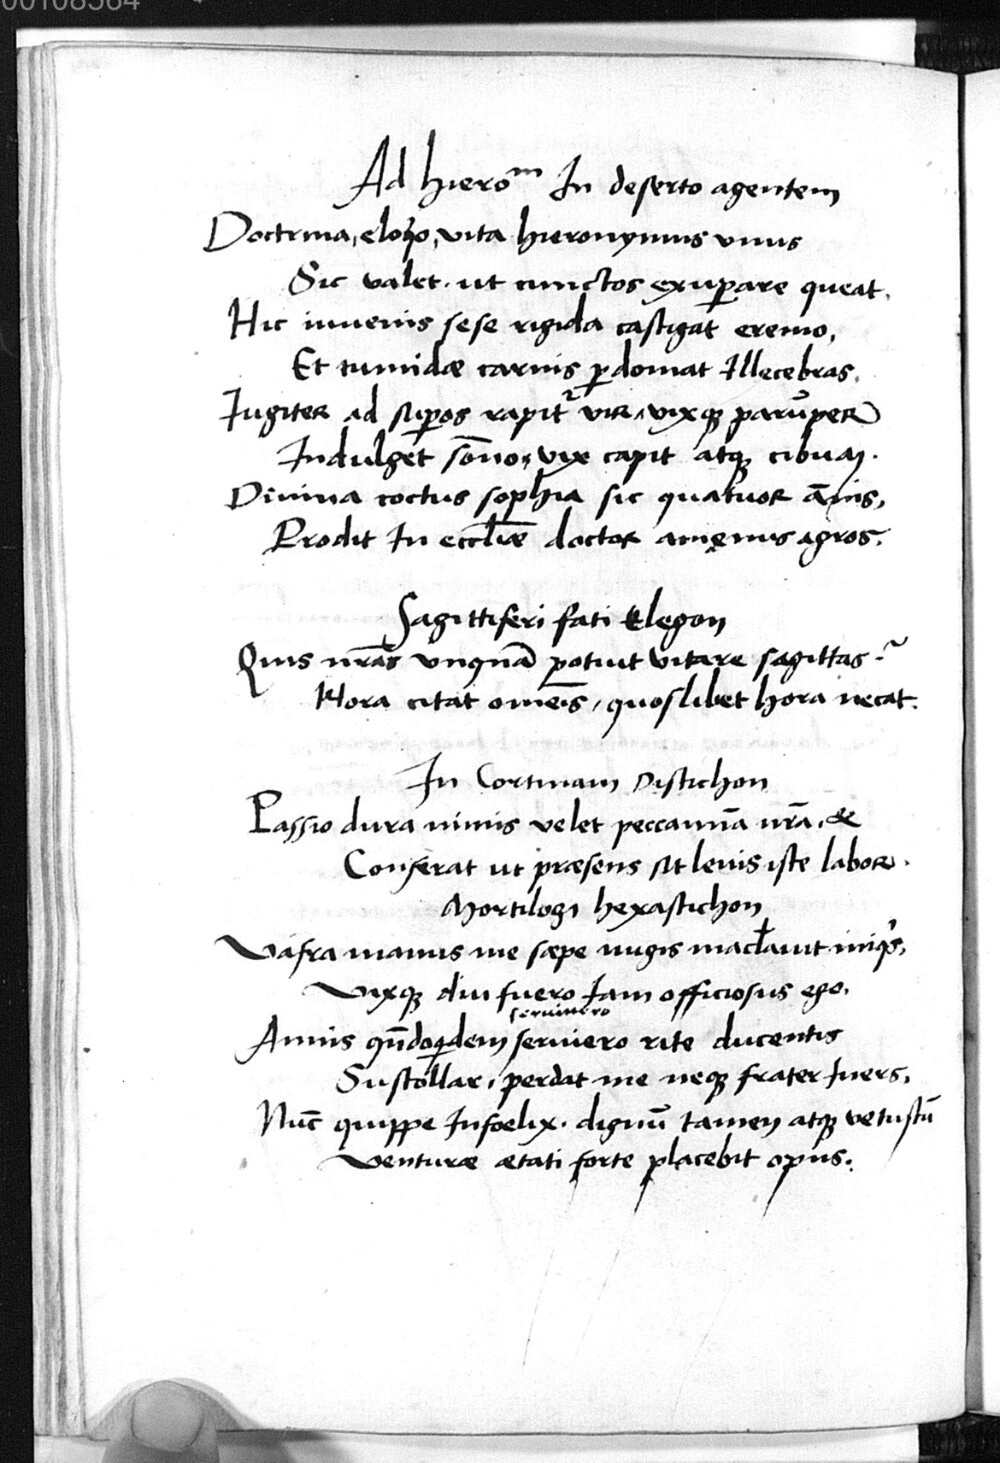 00108564
Ad hierõᵐ In deserto agentem
Doctrina, eloꝗo, vita hieronymus vnus
Sic valet. ut cunctos exuꝑare queat.
Hic iuuenis sese rigida castigat eremo,
Et tumidæ carnis ꝑdomat Illecebras.
Iugiter ad suꝑos rapitᷣ vir, vixqꝫ parũper
Indulget sõno, vix capit atqꝫ cibum.
Diuina coctus sophia sic quatuor ãnis,
Prodit In eccl̄iæ doctor amęnus agros.
Sagittiferi fati Elegon
Quis nr̃as vnquã potuit vitare sagittas?
Hora citat omẽs, quoslibet hora necat.
In Cortinam Distichon
Passio dura nimis velet peccamĩa nr̃a, &
Conferat ut præsens sit leuis iste labor.
Mortilogi hexastichon
Vafra manus me sæpe nugis macl̄auit iniqˢ,
Vixqꝫ diu fuero tam officiosus ego.
seruiuero
Annis qñdoꝗdem seruiero rite ducentis
Sustollar, perdat me neqꝫ frater Iners,
Nũc quippe Infoelix. dignũ tamen atqꝫ vetustũ
Venturæ ætati forte placebit opus.